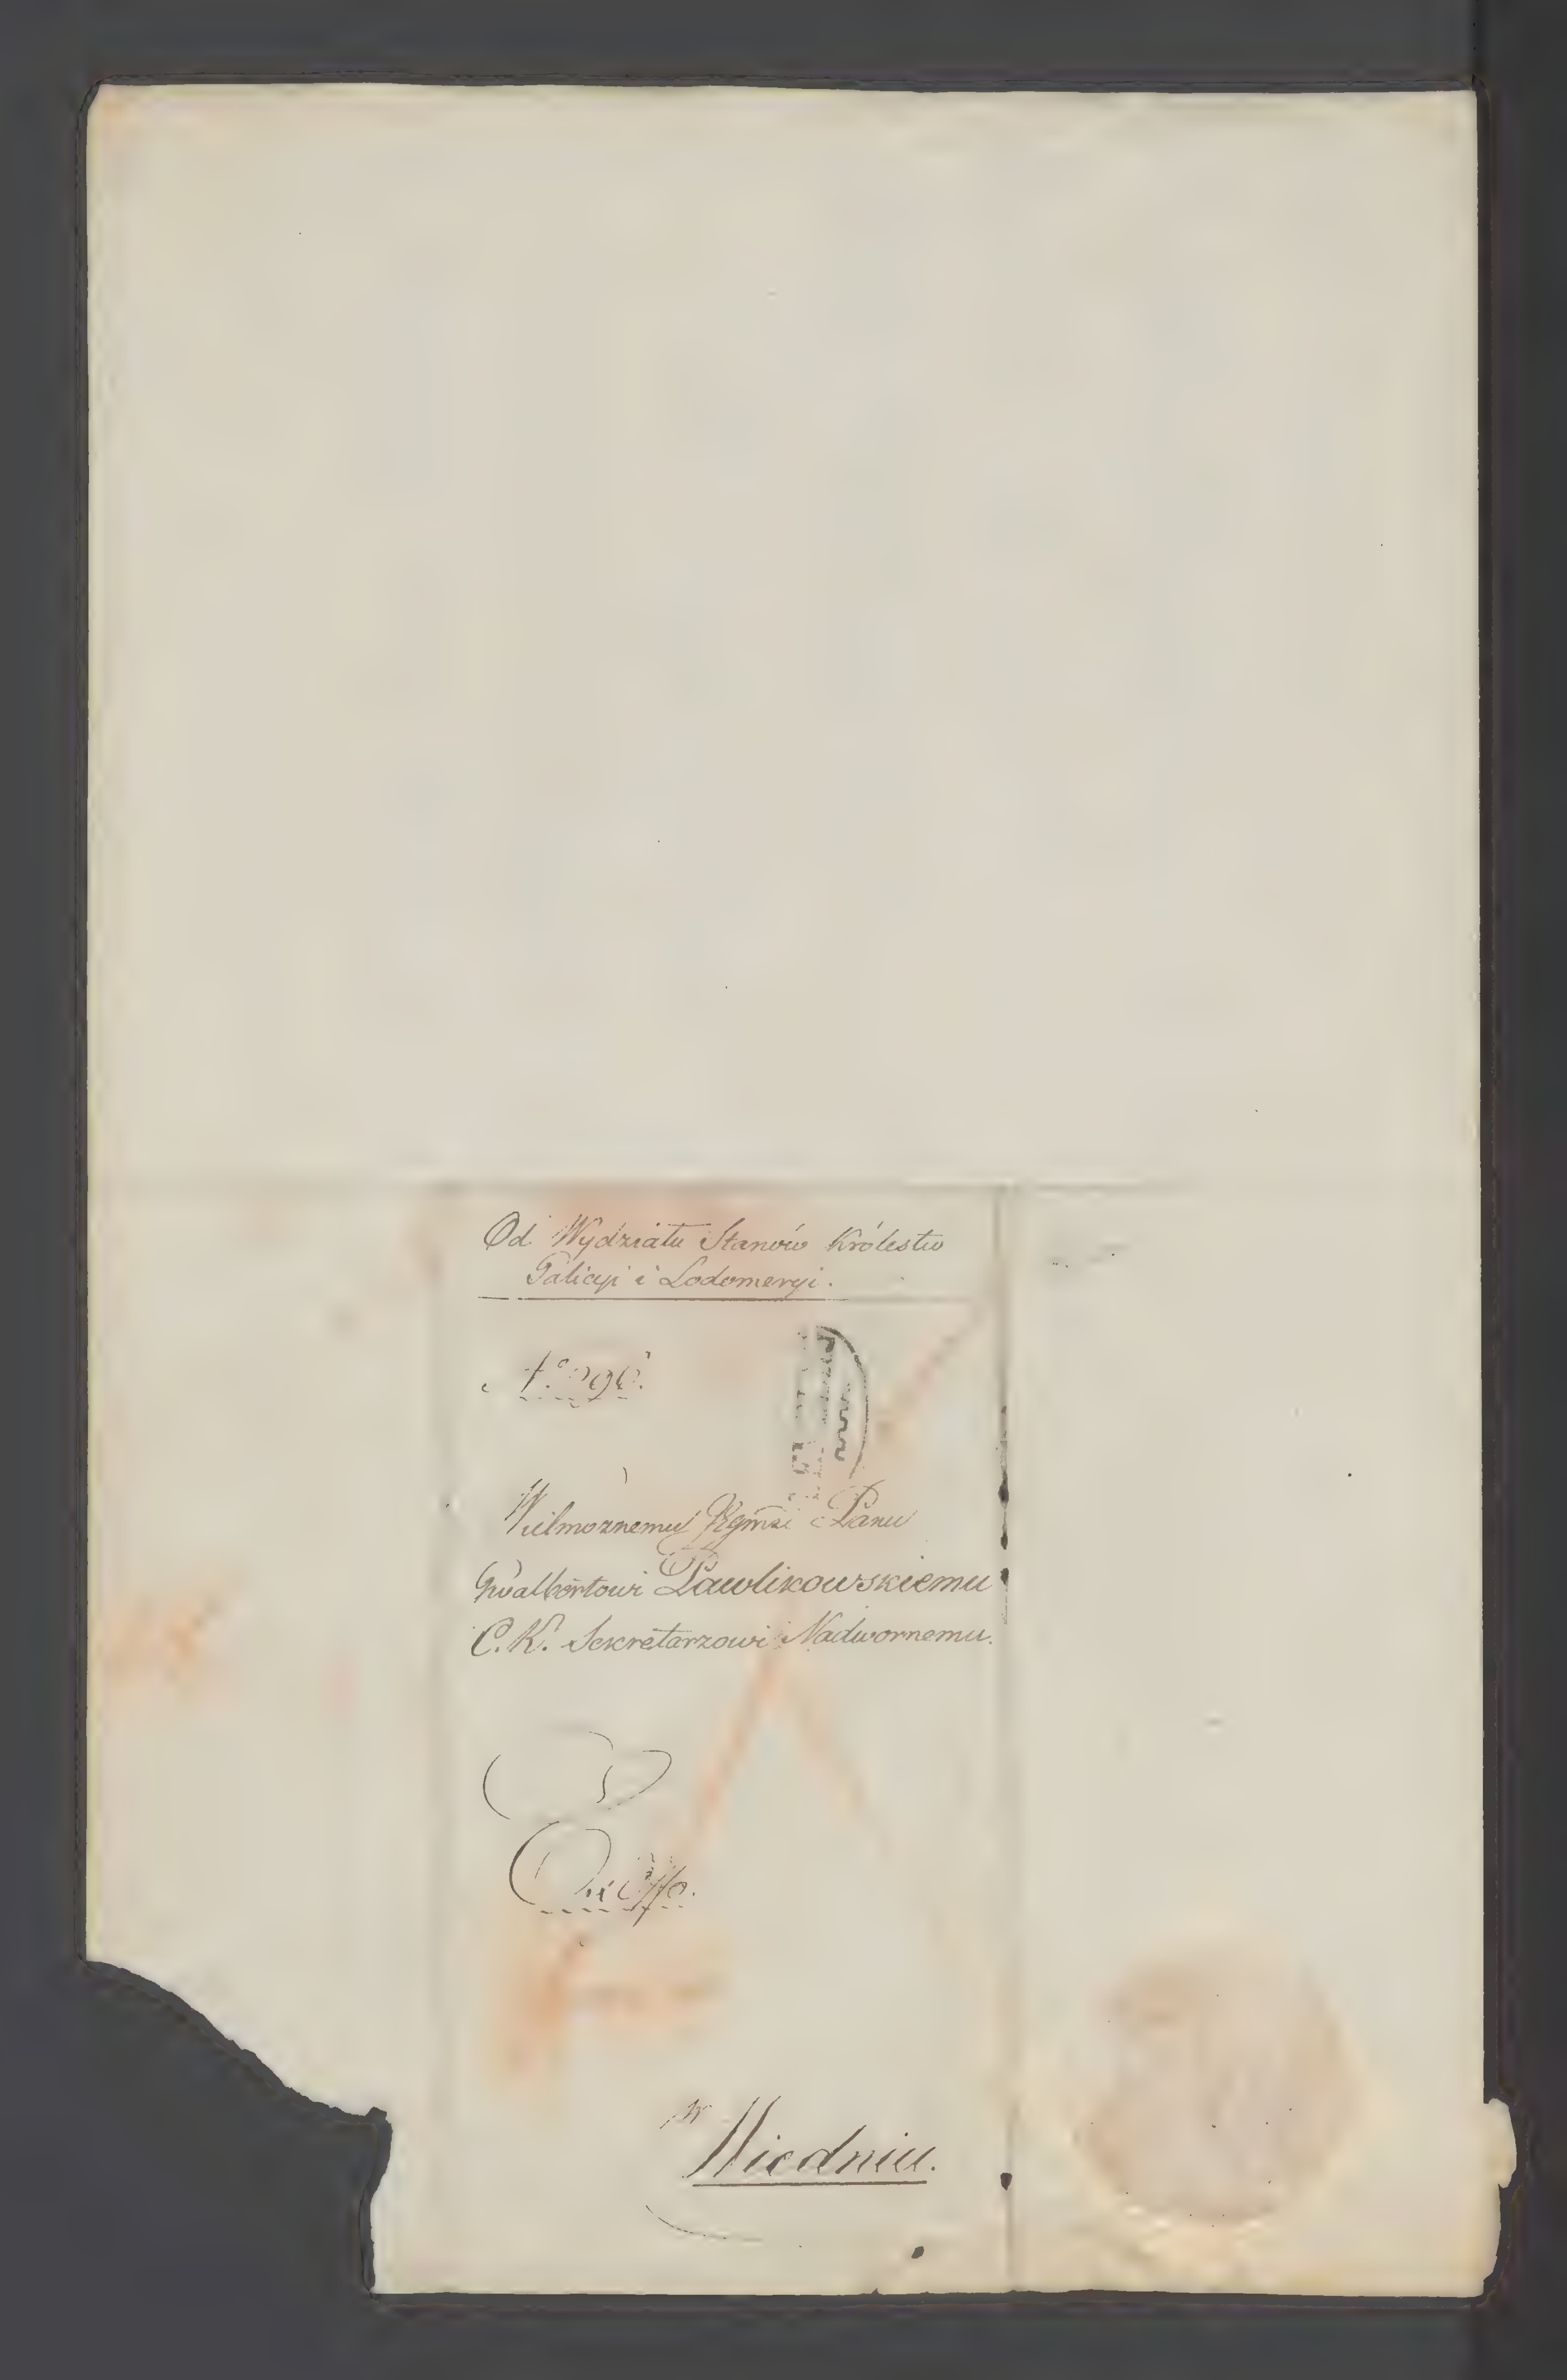 Od Wydziału Stanów Królestw
Galicyi i Lodomeryi.
Wielmożnemu Jgmsi Panu
Gwalbertowi Pawlikowskiemu
C. K. Sekretarzowi Nadwornemu.
w
Wiedniu.